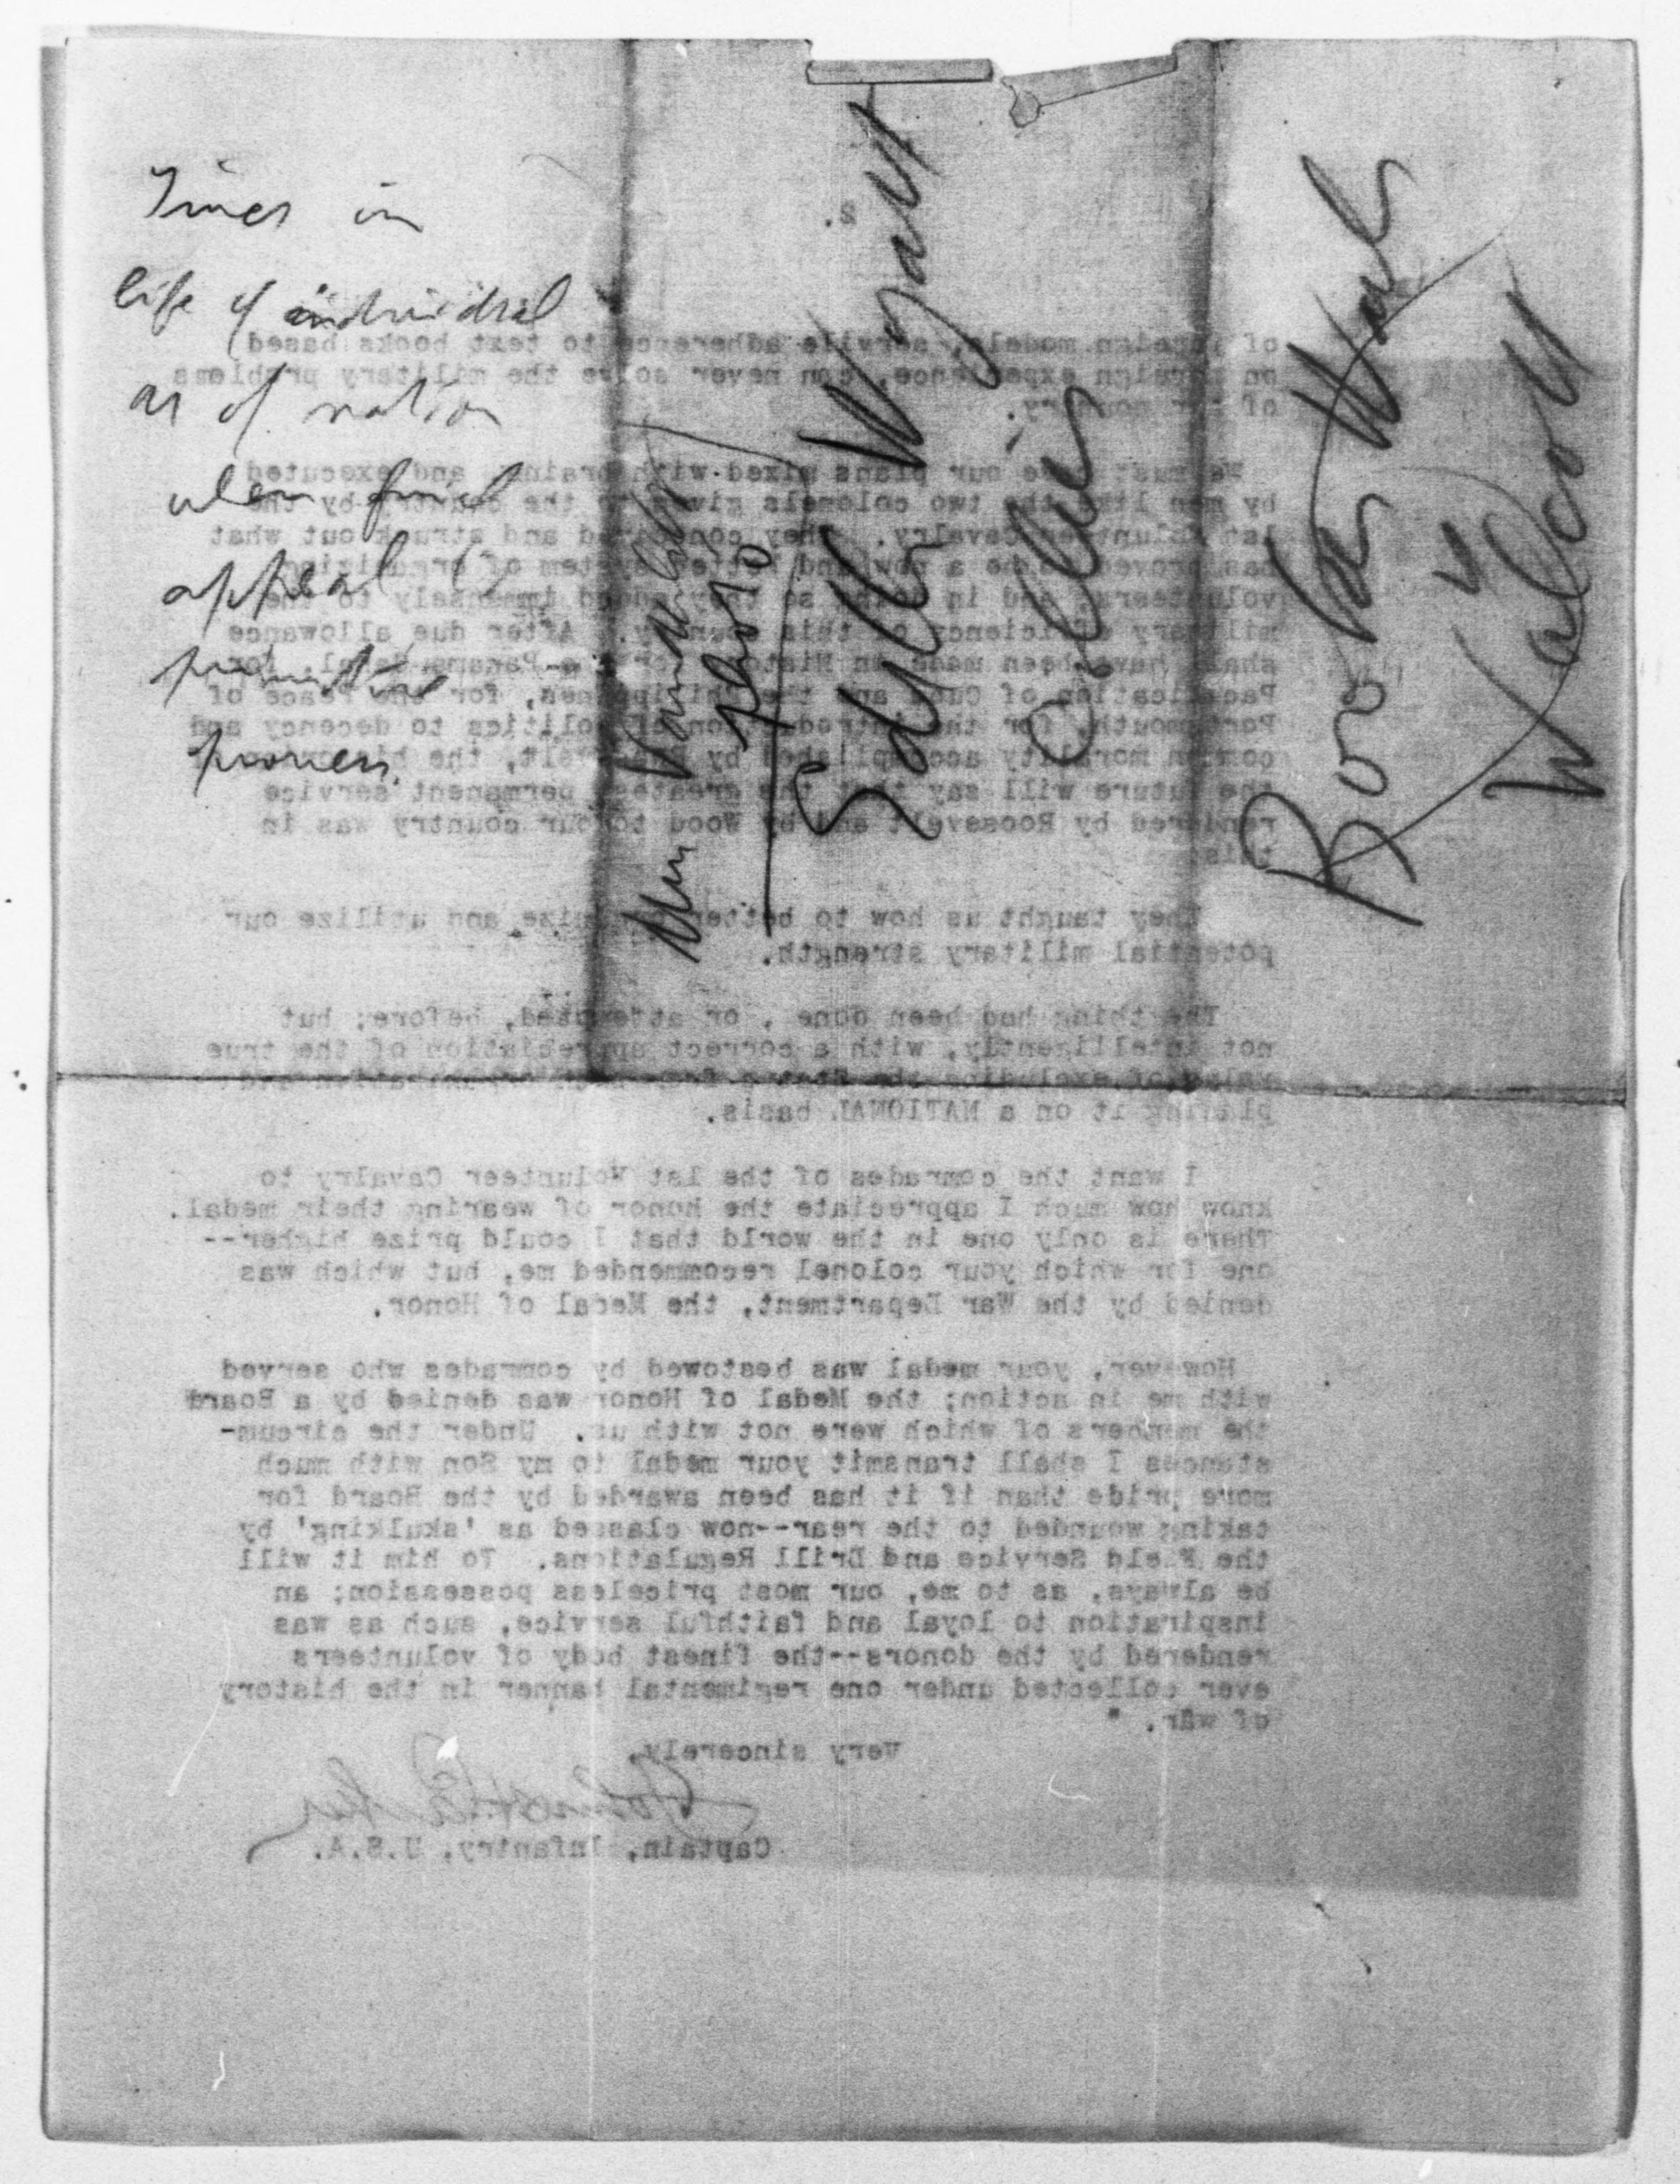 Times in
life of individual
as of nation
when final
appeal
primitive
powers.
Wyatt
Walcott
2.
of foreign models, servile adherence to text books based
on foreign experience, can never solve the military problems
of our country.
We must have our plans mixed with brains, and executed
by men like the two colonels given to the country by the
1st Volunteer Cavalry. They conceived and struck out what
has proved to be a new and better system of organizing
volunteers, and in doing so they added immensely to the
military efficiency of this country. After due allowance
shall have been made in History for the Panama Canal, for
Pacification of Cuba and the Philippines, for the Peace of
Portsmouth, for the introduction of politics to decency and
common morality accomplished by Roosevelt, the historian of
the future will say that the greatest permanent service
rendered by Roosevelt and by Wood to our country was in
this:--
They taught us how to better organize and utilize our
potential military strength.
The thing had been done, or attempted, before; but
not intelligently, with a correct appreciation of the true
value of excluding the States from such organization and
placing it on a NATIONAL basis.
I want the comrades of the 1st Volunteer Cavalry to
know how much I appreciate the honor of wearing their medal.
There is only one in the world that I could prize higher--
one for which your colonel recommended me, but which was
denied by the War Department, the Medal of Honor.
However, your medal was bestowed by comrades who served
with me in action; the Medal of Honor was denied by a Board
the members of which were not with us. Under the circum-
stances I shall transmit your medal to my Son with much
more pride than if it has been awarded by the Board for
taking wounded to the rear--now classed as 'skulking' by
the Field Service and Drill Regulations. To him it will
be always, as to me, our most priceless possession; an
inspiration to loyal and faithful service, such as was
rendered by the donors--the finest body of volunteers
ever collected under one regimental banner in the history
of war."
Very sincerely,
John H. Parker
Captain, Infantry, U.S.A.